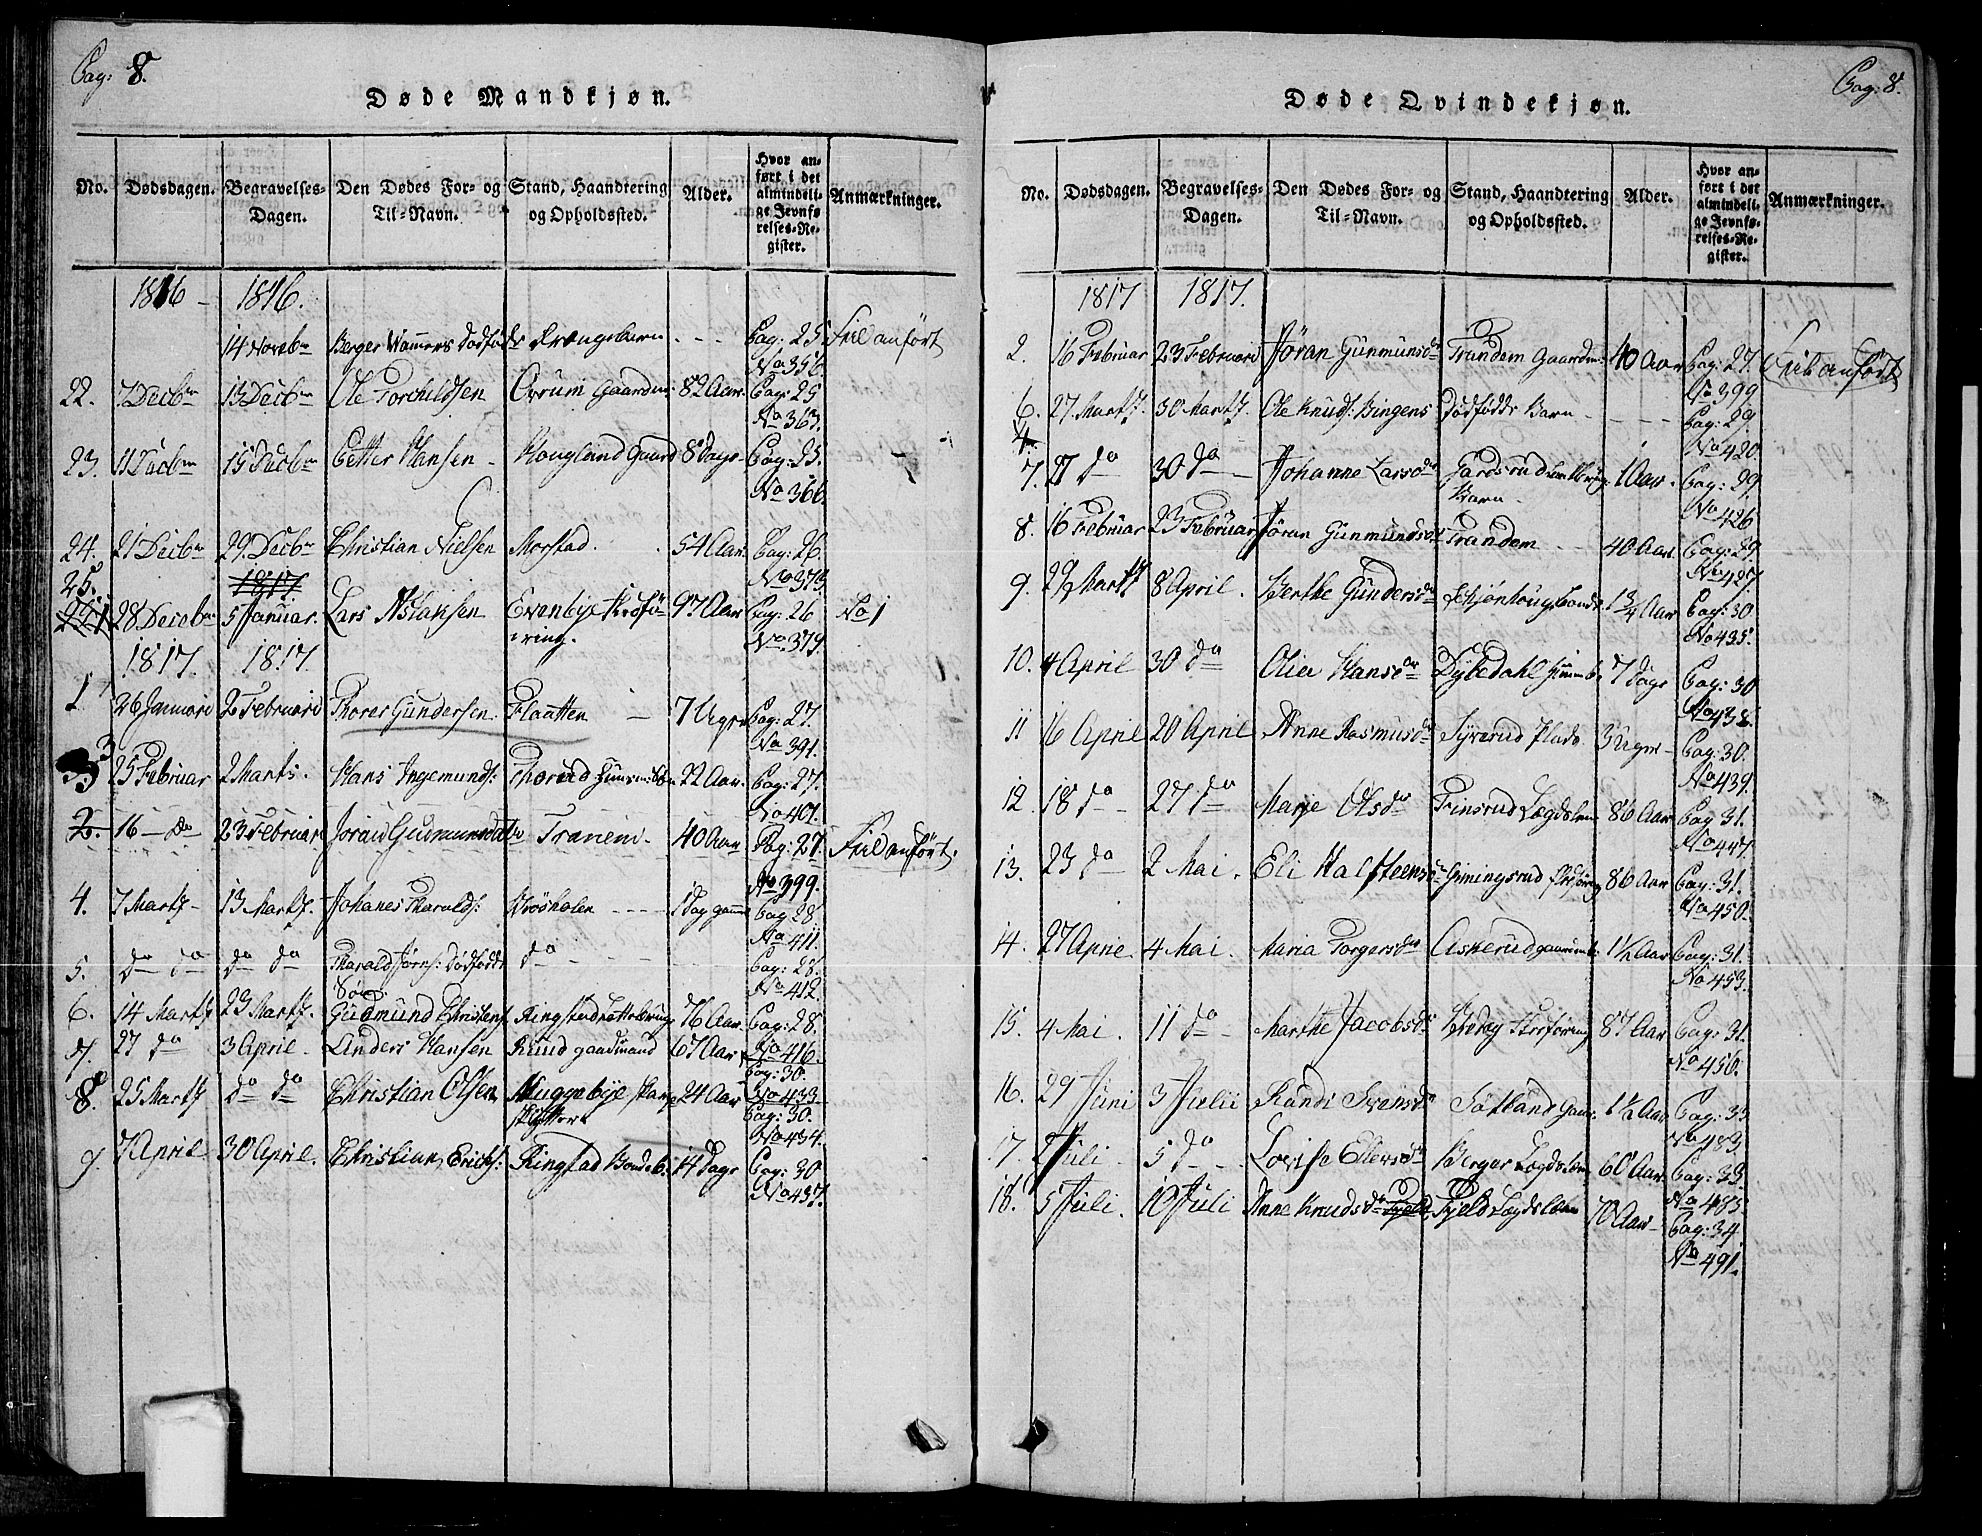 Pag: 8.
Døde Mandkjøn.
No. Dødsdagen. Begravelses-Dagen. Den Dødes For- og Til-Navn. Stand, Haandtering og Opholdssted. Alder. Hvor anført i det almindelige Jevnførelses-Register. Anmærkninger.
1816 - 1816.
14 Novebr Berger Dødfødt Drengebarn - - - Pag: 25 Feil anført
No 356.
22. 7 Decbr 13 Decbr Ole Torchildsen Orrum Gaardm: 82 Aar Pag: 25
No 363.
23. 11 Decbr 15 Decbr Petter Hansen - Hougland Gaard 8 Dage Pag: 25.
No 366.
24. 21 Decbr 29 Decbr Christian Nielsen Morstad. 54 Aar Pag: 26.
25. 1817. No 373.
28 Decebr 5 Januar. Lars Hansen Evenbye 97 Aar Pag: 26 No 1
No 379.
1817. 1817.
1 26 Januari 2 Februari Thorer Gundersen Flaatten - 7 Uger Pag: 27.
No 391.
3 25 Februar 2 Marts. Hans Ingemunds: Thorud 22 Aar. Pag: 27.
No 401.
2. 16 - do 23 Februar Joran Gudmunsdatr Tranem. 40 Aar Pag: 27 Feil anført.
No 399.
4. 7 Marts - 13 Marts. Johanes Tharalds: - - - 1 Dag gaml Pag: 28
No 411.
5. do do do do Tharald Jørns: Dødfødde do - - - Pag: 28.
Søn. No 412.
6. 14 Marts 23 Marts. Gudmund Christens: Ringstad 76 Aar. Pag: 28.
7. 27 do 3 April - Anders Hansen Ruud gaardmand 67 Aar No 416.
Pag: 30.
8. 25 Marts do do Christian Olsen Muggebye 24 Aar No 433
Pag: 30.
No 434.
9. 7 April 30 April. Christian Ericks: Ringstad Bondeb. 14 Dage Pag: 30
No 437.
Pag: 8.
Døde Qvindekjøn.
No. Dødsdagen. Begravelses-Dagen. Den Dødes For- og Til-Navn. Stand, Haandtering og Opholdssted. Alder. Hvor anført i det almindelige Jevnførelses-Register. Anmærkninger.
1817 1817.
2. 16 Februar 23 Februari Jøran Gunmunsdr Trandem Gaardm: 40 Aar Pag: 27. Feil anført
No 399
6. 27 Marts 30 Marts. Ole Knuds: Bingens Dødfødde Barn - - - Pag: 29
4. No 420.
7. 17 do 30 do - Johanne Larsdr 1 Aar. Pag: 29.
Barn. No 426
8. 16 Februar 23 Februar Jøran Gunmundsdr Trandem - - 40 Aar Pag: 29
No 427
9. 29 Marts 8 April. Berthe Gundersdr 1 3/4 Aar Pag: 30.
No 435.
10. 4 April 30 do Olia Hansdr Dybedahl 7 Dage Pag: 30
No 438.
11 16 April 20 April Anne Rasmusdr Syverud Plads. 3 Uger - Pag: 30.
No 439.
12. 18 do - 27 do Marje Olsdr Finsrud Lægdslem 86 Aar Pag 31.
No 447.
13. 23 do 2 Mai. Eli Halfteensdr 86 Aar Pag: 31.
No 450.
14. 27 Aprie 4 Mai. Maria Torgersdr Askerud 1 1/2 Aar Pag: 31.
No 453.
15. 4 Mai. 11 do - Marthe Jacobsdr 87 Aar Pag: 31.
No 456.
16. 29 Juni 3 Julii Randi Svensdr Søtland 1 1/2 Aar Pag: 33
No 483.
17. 2 Juli. 5 do - - Lovise Ellevsdr Berger Lægdslem 60 Aar Pag: 33.
No 485
18. 5 Juli. 10 Juli Anne Knudsdr Fjeld Fjeld Lægdslem 70 Aar - Pag: 34
No 491.